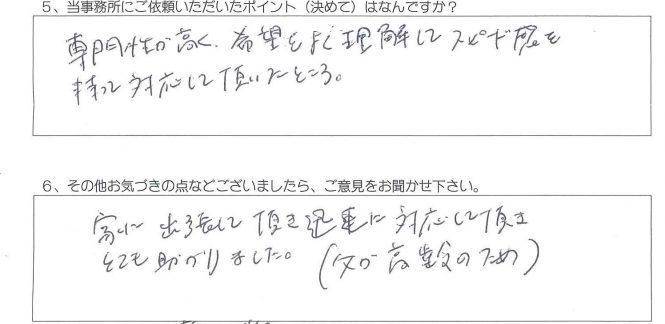 5、当事務所にご依頼いただいたポイント（決めて）はなんですか？
専門性が高く、希望をよく理解してスピード感を
持って対応して頂いたところ。
6、その他お気づきの点などございましたら、ご意見をお聞かせ下さい。
家に出張して頂き迅速に対応して頂き
とても助かりました。（父が高齢のため）